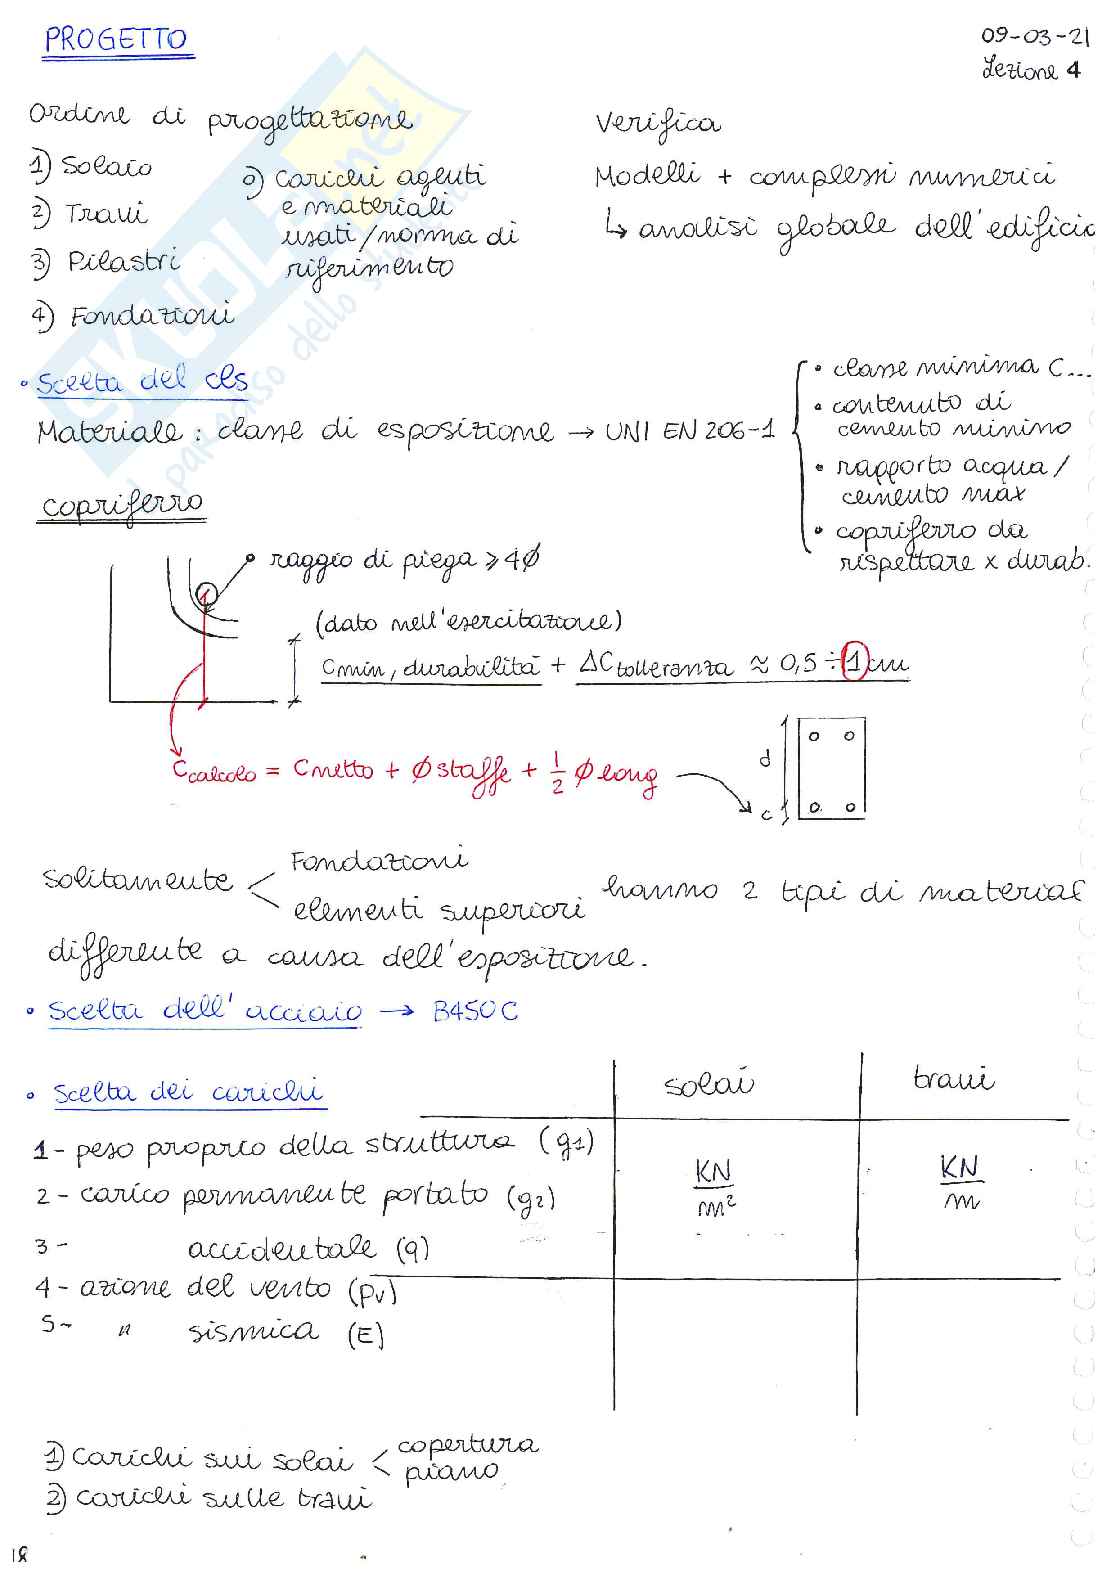 PROGETTO
09-03-21
Lezione 4
Ordine di progettazione
Verifica
1) Solaio
0) Carichi agenti
e materiali
usati/norma di
riferimento
2) Travi
3) Pilastri
4) Fondazioni
Modelli + complessi numerici
↳ analisi globale dell'edificio
• Scelta del cls
Materiale: classe di esposizione → UNI EN 206-1
• classe minima C...
• contenuto di
cemento minimo
• rapporto acqua/
cemento max
• copriferro da
rispettare x durab.
Copriferro
raggio di piega ≥ 4Ø
(dato nell'esercitazione)
Cmin, durabilità + ΔCtolleranza ≈ 0,5 ÷ 1 cm
Ccalcolo = Cnetto + Ø staffe + 1/2 Ø long
d
c
Solitamente < Fondazioni
elementi superiori
hanno 2 tipi di material
differente a causa dell'esposizione.
• Scelta dell'acciaio → B450C
• Scelta dei carichi
solai
travi
1- peso proprio della struttura (g1)
KN/m²
KN/m
2- carico permanente portato (g2)
3- accidentale (q)
4- azione del vento (pv)
5- " sismica (E)
1) Carichi sui solai < copertura
piano
2) Carichi sulle travi
18
SKUOLA.net
il paradiso dello studente